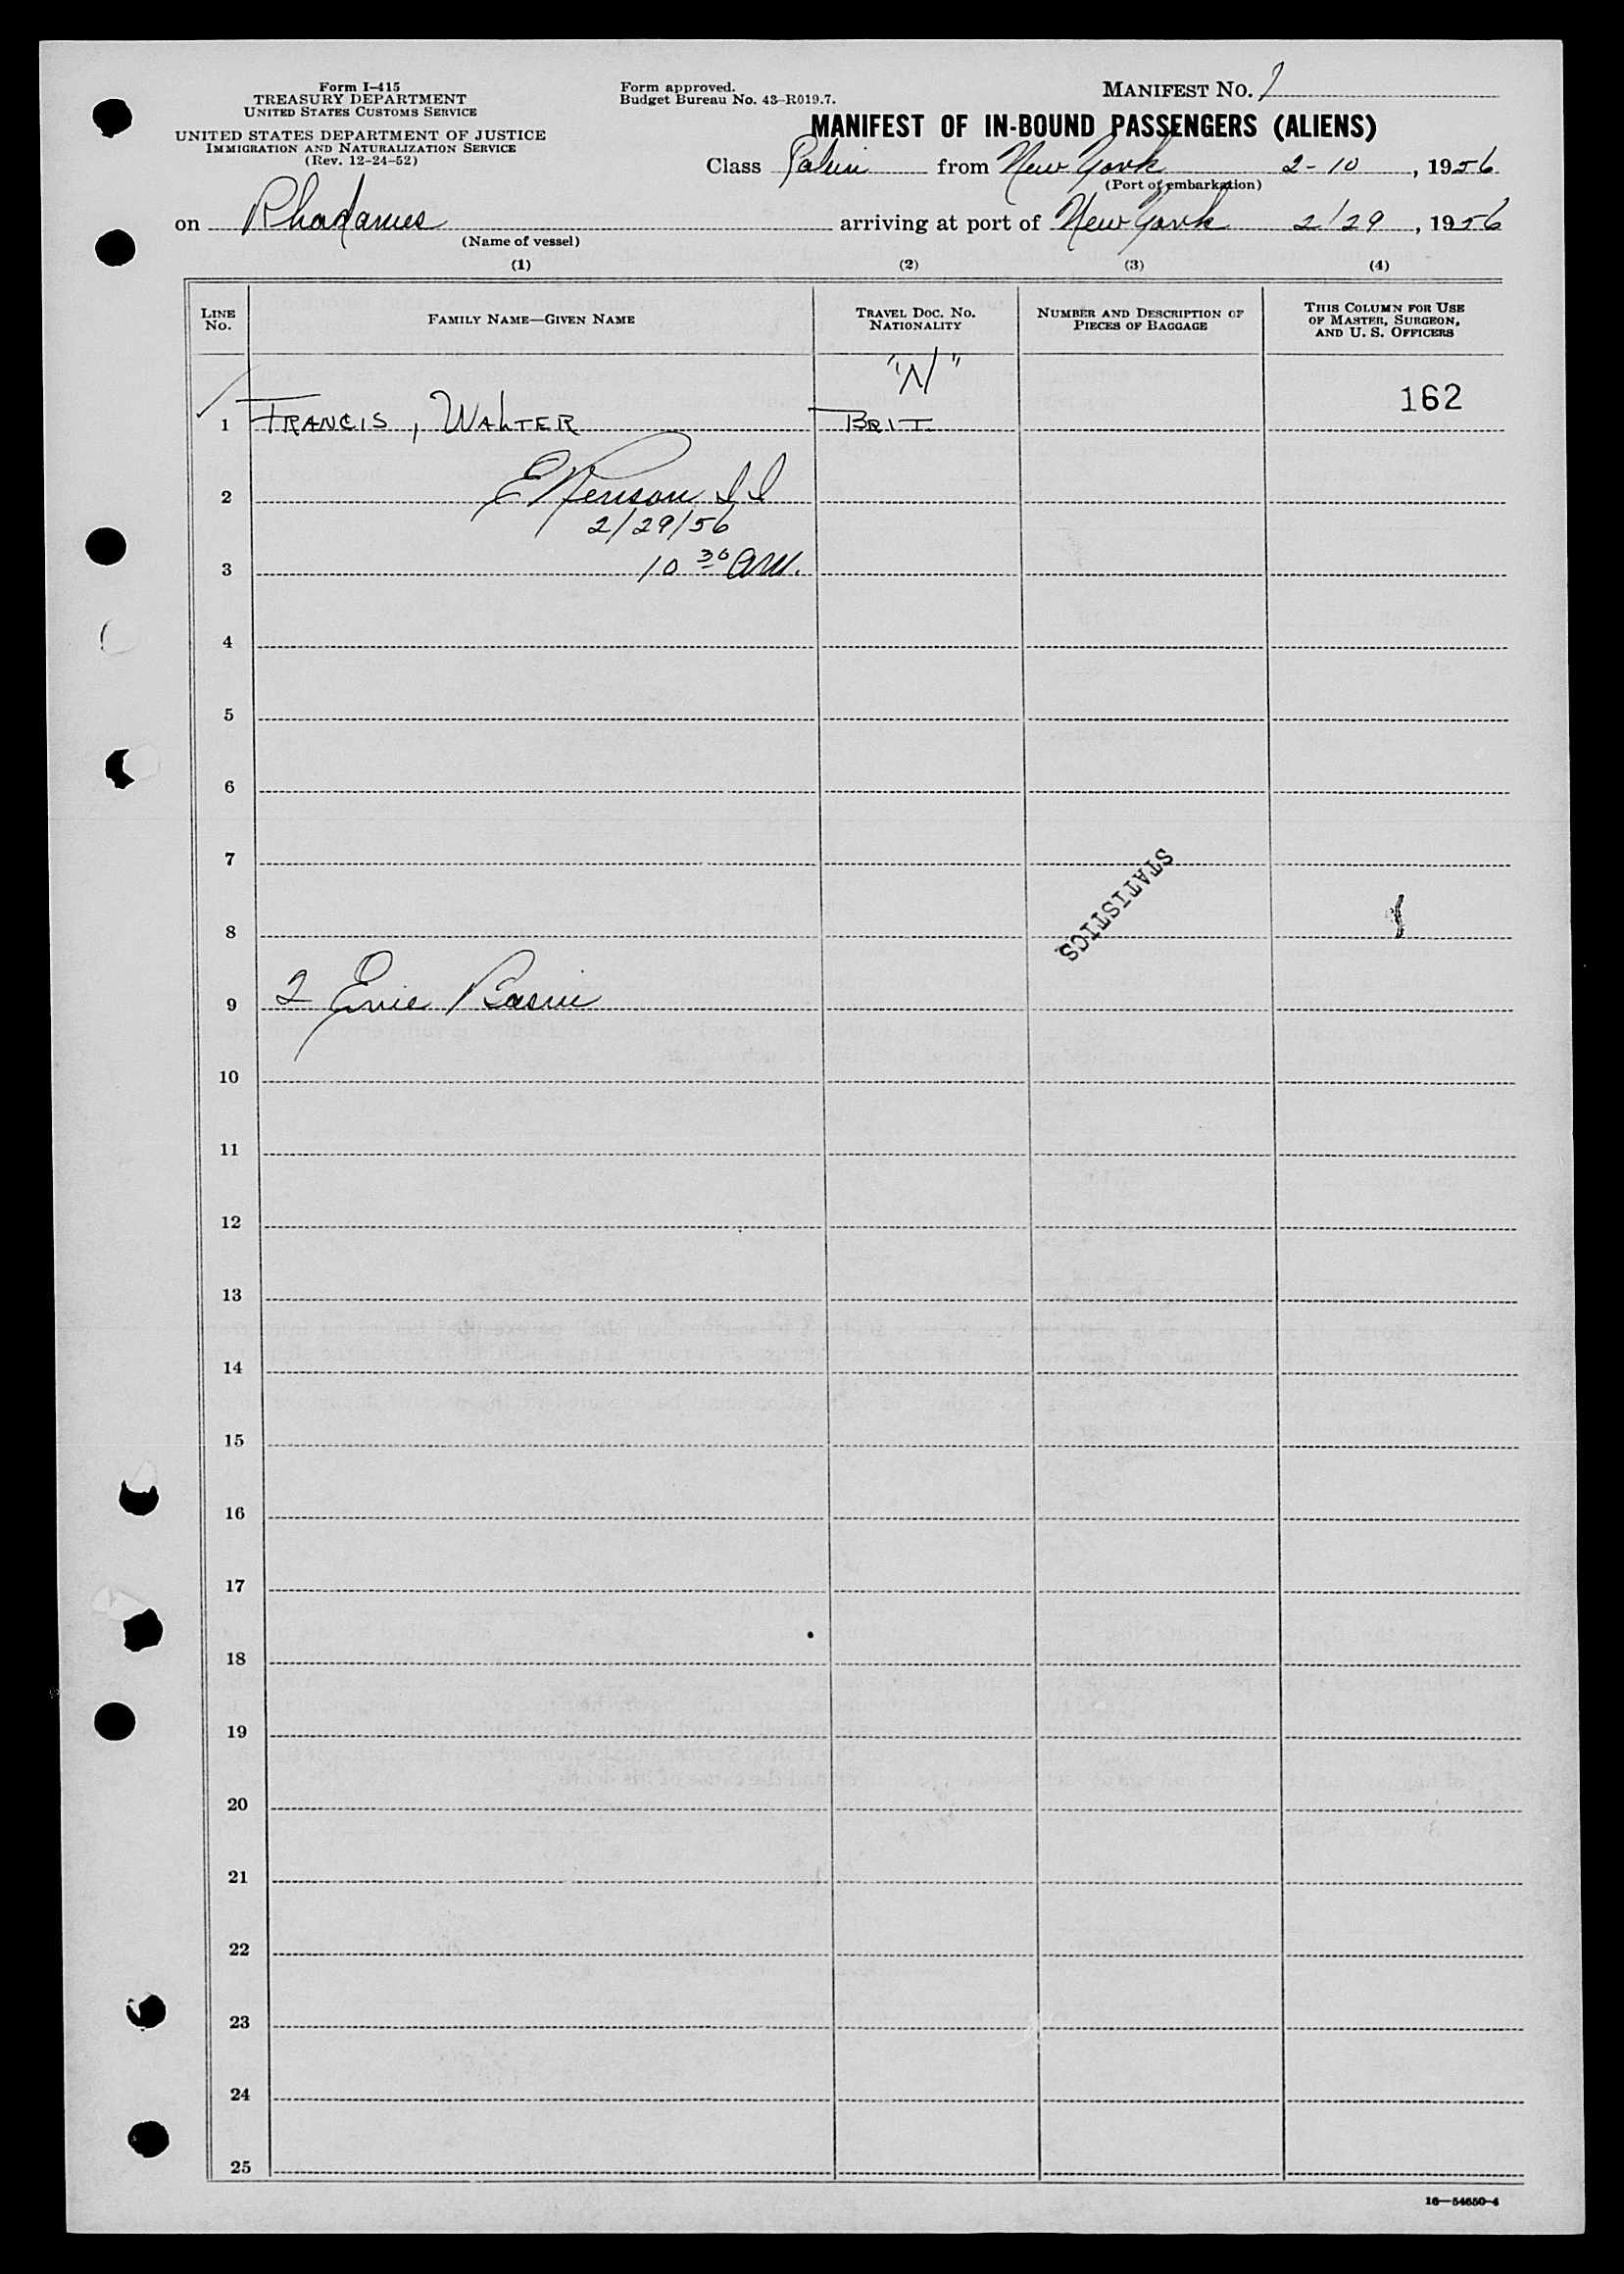 Form I-415
TREASURY DEPARTMENT
UNITED STATES CUSTOMS SERVICE
UNITED STATES DEPARTMENT OF JUSTICE
IMMIGRATION AND NATURALIZATION SERVICE
(Rev. 12-24-52)
Form approved.
Budget Bureau No. 43-R019.7.
MANIFEST NO. 1
MANIFEST OF IN-BOUND PASSENGERS (ALIENS)
Class from New York 2-10, 1956
(Port of embarkation)
on Rhadames arriving at port of New York 2/29, 1956
(Name of vessel)
(1) (2) (3) (4)
LINE NO. FAMILY NAME—GIVEN NAME TRAVEL DOC. NO. NATIONALITY NUMBER AND DESCRIPTION OF PIECES OF BAGGAGE THIS COLUMN FOR USE OF MASTER, SURGEON, AND U. S. OFFICERS
"N"
162
1 FRANCIS, WALTER BRIT.
2
2/29/56
3 10 30 AM.
4
5
6
7
STATISTICS
8 1
9 2
10
11
12
13
14
15
16
17
18
19
20
21
22
23
24
25
16—54650-4